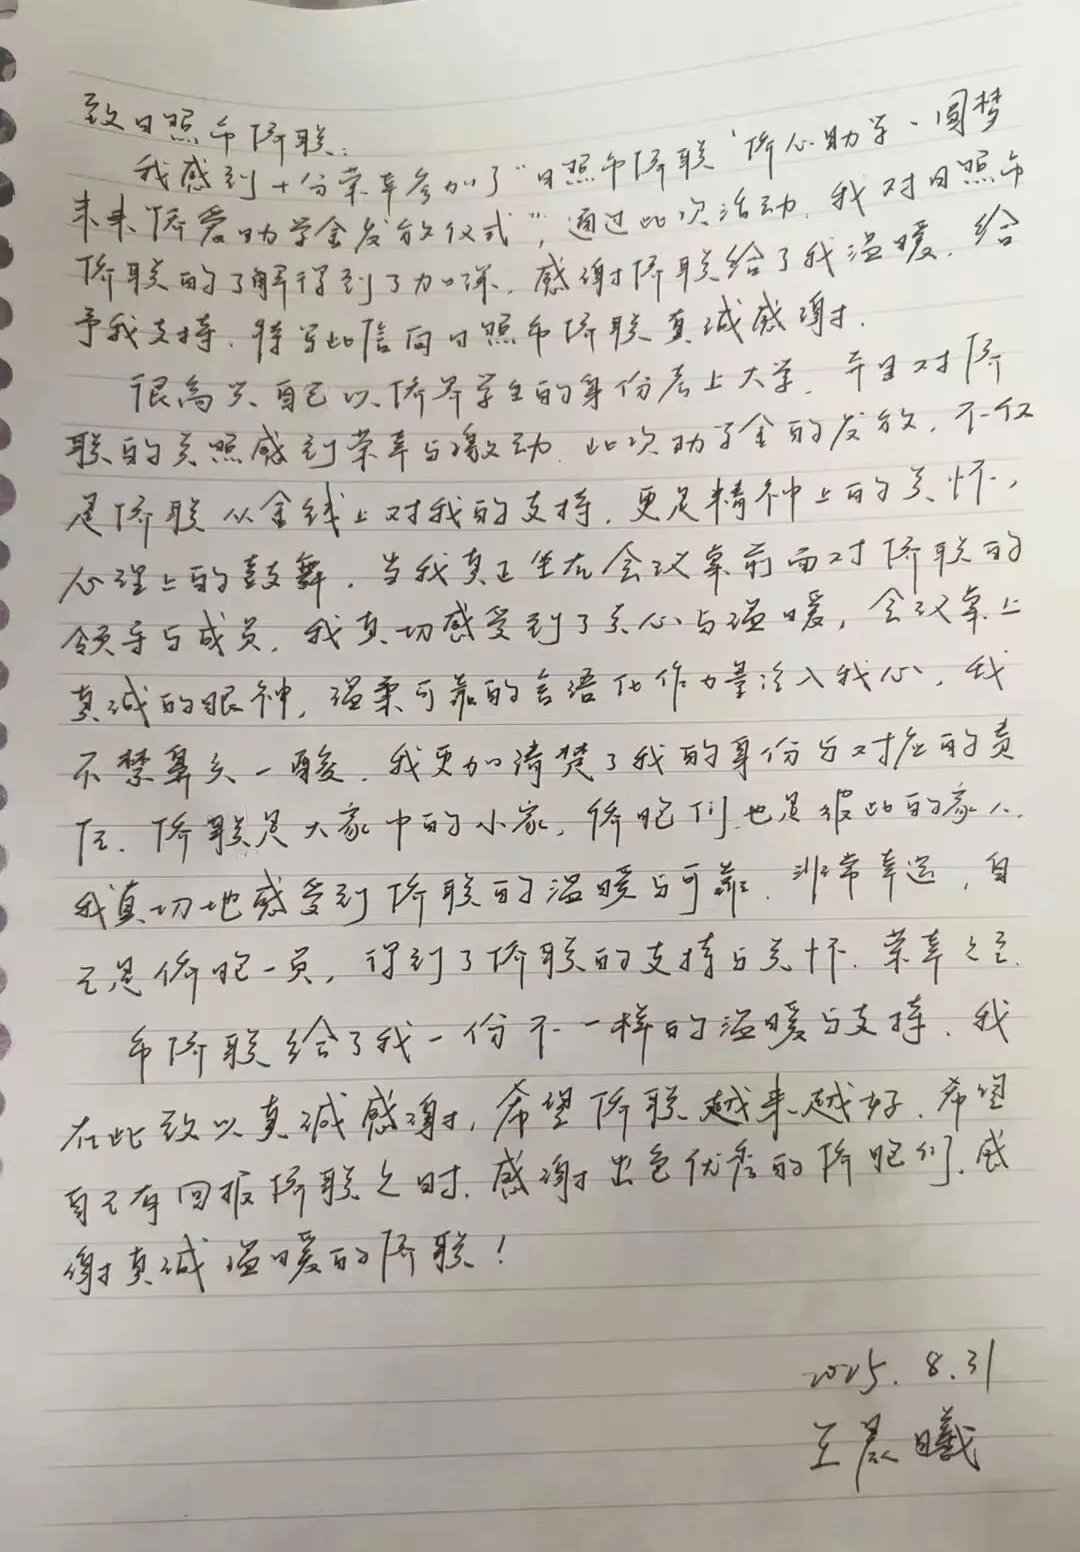 致日照市侨联：
我感到十分荣幸参加了“日照市侨联‘侨心助学·圆梦
未来’侨爱助学金发放仪式”，通过此次活动，我对日照市
侨联的了解得到了加深，感谢侨联给了我温暖，给
予我支持，特写此信向日照市侨联真诚感谢。
很高兴自己以侨界学生的身份考上大学，并且对侨
联的关照感到荣幸与激动。此次助学金的发放，不仅
是侨联从金钱上对我的支持，更是精神上的关怀，
心理上的鼓舞。当我真正坐在会议桌前面对侨联的
领导与成员，我真切感受到了关心与温暖，会议桌上
真诚的眼神，温柔可靠的言语化作力量注入我心，我
不禁鼻头一酸，我更加清楚了我的身份与对应的责
任。侨联是大家中的小家，侨胞们也是彼此的家人。
我真切地感受到侨联的温暖与可靠，非常幸运，自
己是侨胞一员，得到了侨联的支持与关怀，荣幸之至。
市侨联给了我一份不一样的温暖与支持，我
在此致以真诚感谢，希望侨联越来越好，希望
自己有回报侨联之时。感谢出色优秀的侨胞们，感
谢真诚温暖的侨联！
2025.8.31
王晨曦